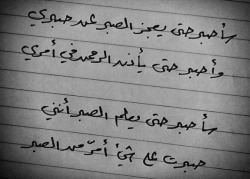 سأصبر حتى يعجز الصبر عن صبري
وأصبر حتى يأذن الرحمن في أمري
سأصبر حتى يعلم الصبر أنني
صبرت على شئ أمرّ من الصبر